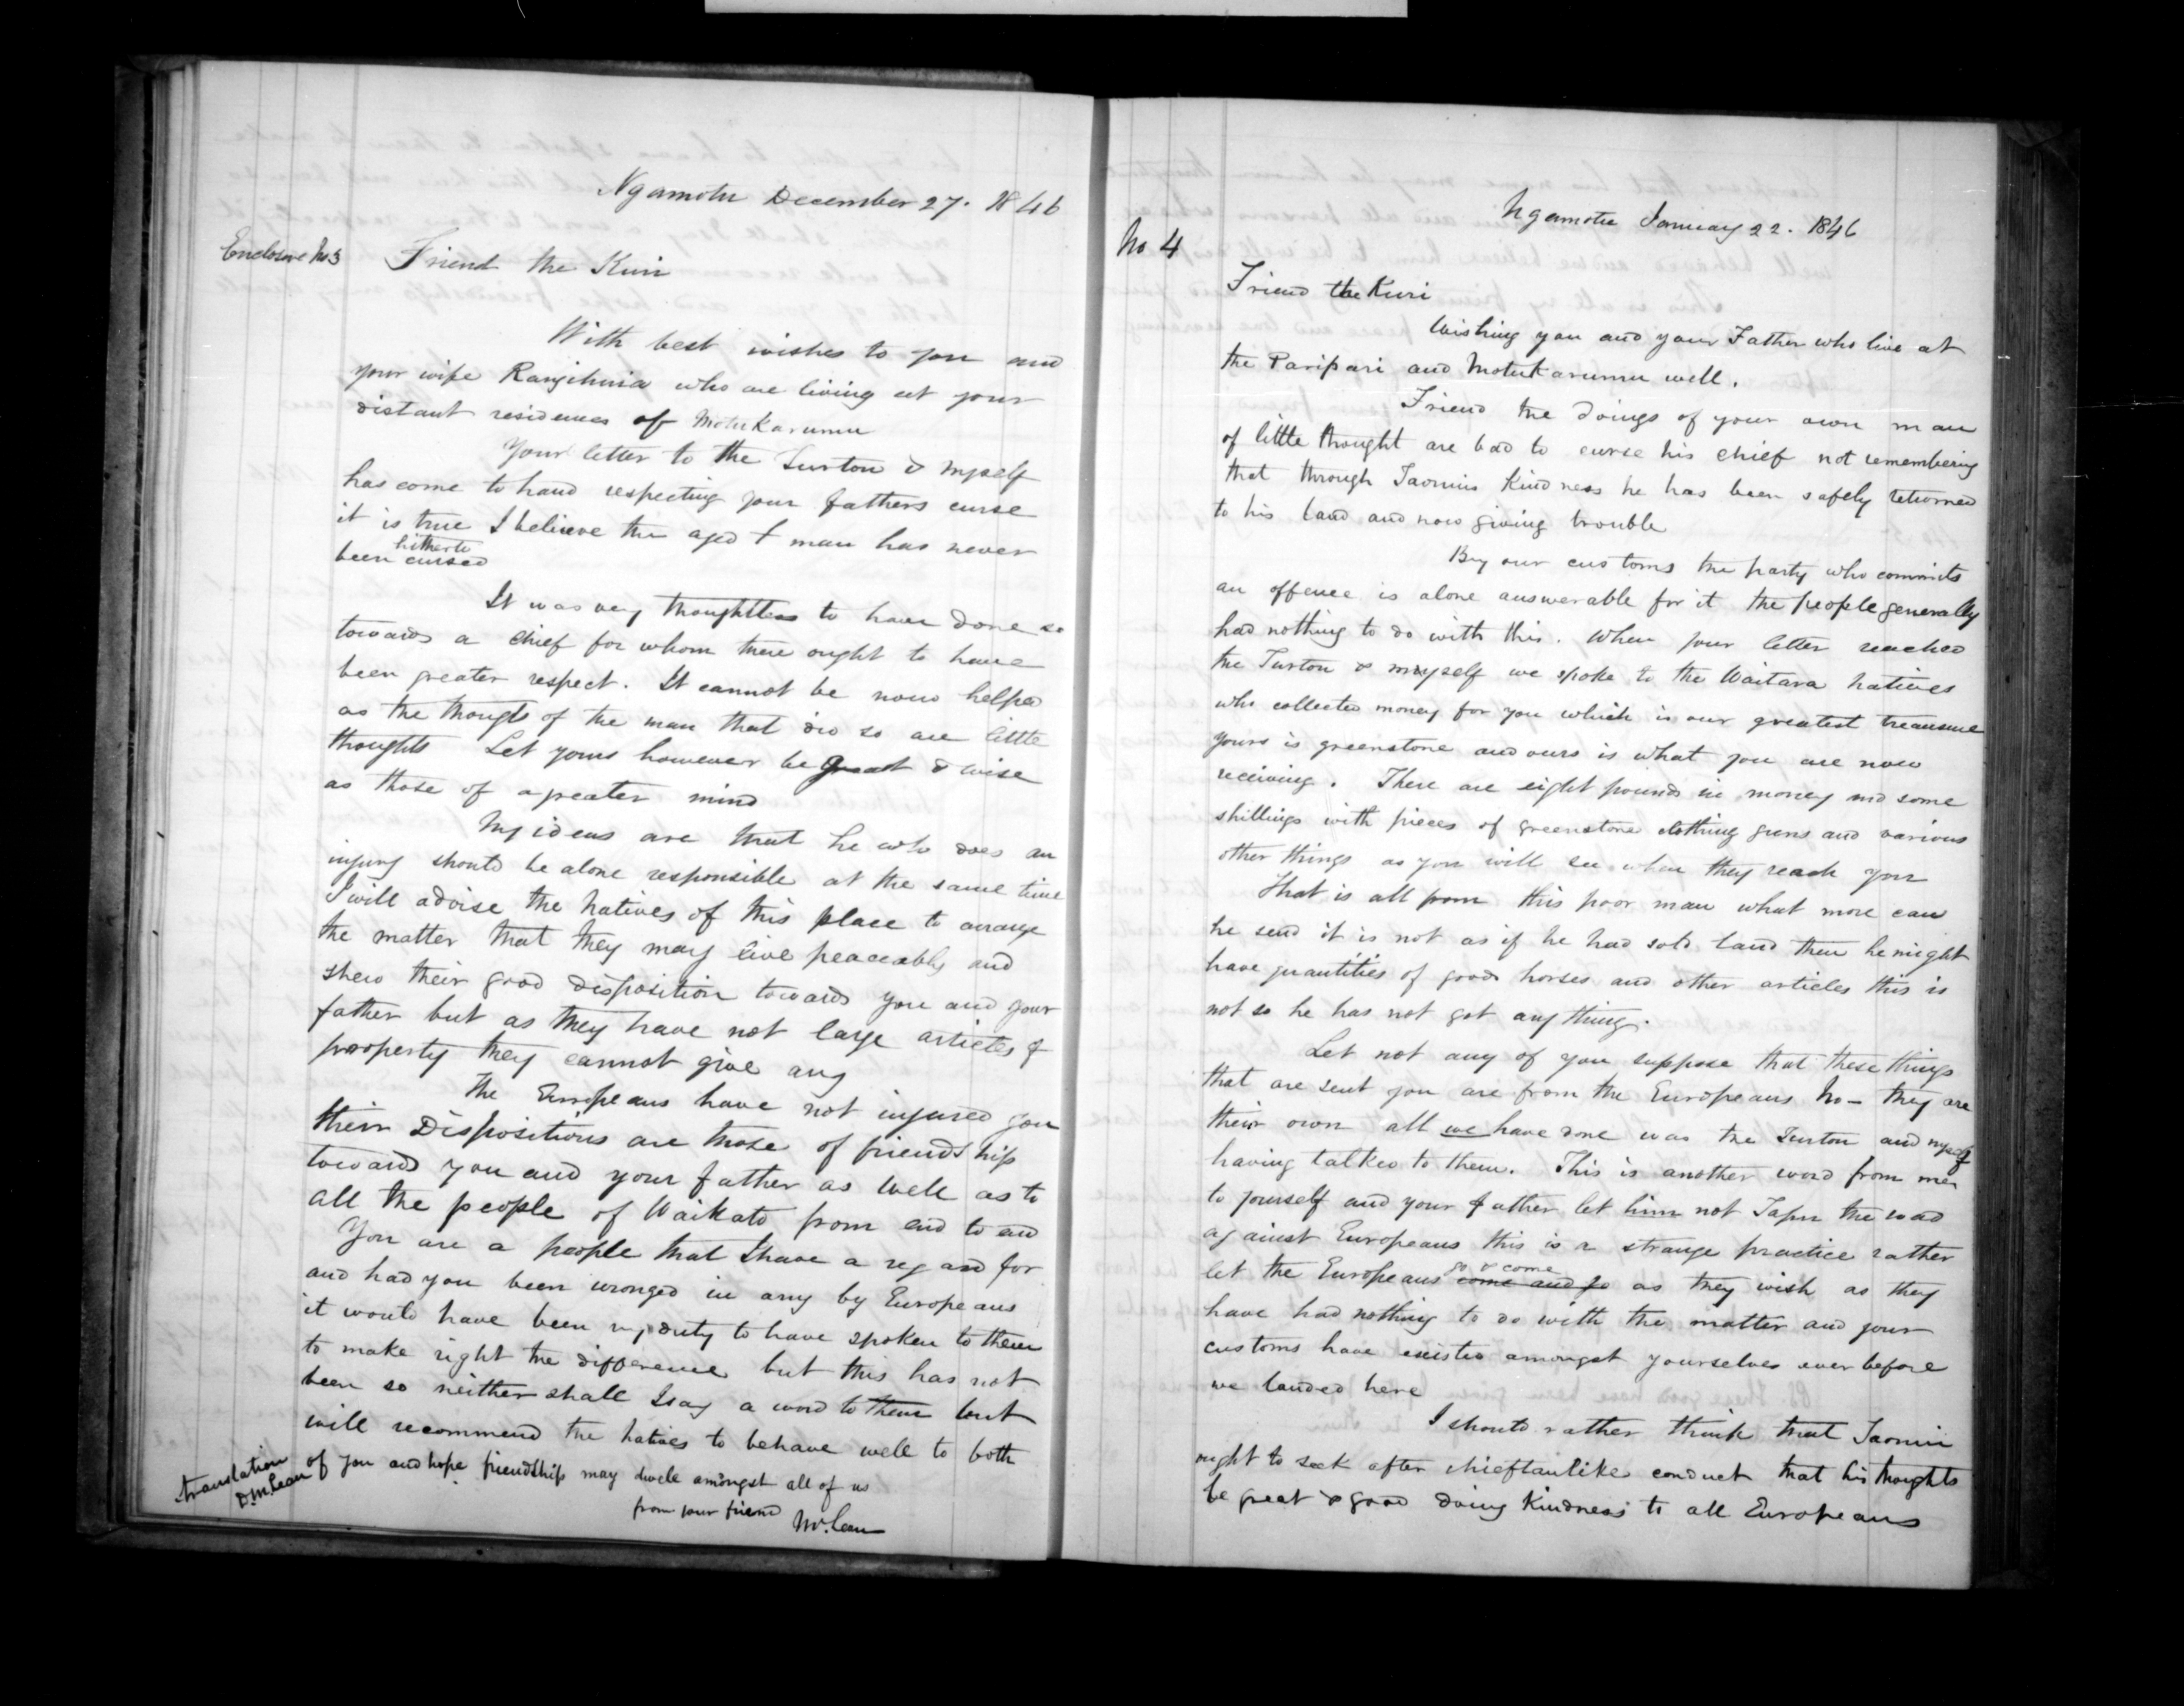 Ngamotu December 27. 1846
Enclosure No 3
Friend the Kuri
With best wishes to you and
your wife Rangihuia who are living at your
distant residences of Motukaramu
Your letter to the Turton & myself
has come to hand respecting your fathers curse
it is true I believe the aged + man has never
been hitherto cursed
It was very thoughtless to have done so
towards a chief for whom there ought to have
been greater respect. It cannot be now helped
as the thougts of the man that did so are little
thoughts Let yours however be great & wise
as those of a greater mind
My ideas are that he who does an
injury should be alone responsible at the same time
I will advise the natives of this place to arrange
the matter that they may live peaceably and
shew their good disposition towards you and your
father but as they have not large articles of
property they cannot give any
The Europeans have not injured you
their Dispositions are those of friendship
towards you and your father as well as to
all the people of Waikato from end to end
You are a people that I have a regard for
and had you been wronged in any by Europeans
it would have been my duty to have spoken to them
to make right the difference but this has not
been so neither shall I say a word to them but
will recommend the natives to behave well to both
of you and hope friendship may dwell amongst all of us
from your friend McLean
translation
D McLean
No 4
Ngamotu January 22. 1846
Friend the Kuri
Wishing you and your Father who live at
the Paripari and Motukaramu well.
Friend the doings of your own man
of little thought are bad to curse his chief not remembering
that through Taonuis Kindness he has been safely returned
to his land and now giving trouble
By our customs the party who commits
an offence is alone answerable for it the people generally
had nothing to do with this. When your letter reached
the Turton & myself we spoke to the Waitara natives
who collected money for you which is our greatest treasure
yours is greenstone and ours is what you are now
receiving. There are eight pounds in money and some
shillings with pieces of greenstone clothing guns and various
other things as you will see when they reach you
That is all from this poor man what more can
he send it is not as if he had sold land then he might
have quantities of goods horses and other articles this is
not so he has not got any thing.
Let not any of you suppose that these things
that are sent you are from the Europeans No - they are
their own all we have done was the Turton and myself
having talked to them. This is another word from me
to yourself and your father let him not Tapu the road
against Europeans this is a strange practice rather
let the Europeans go & come come and go as they wish as they
have had nothing to do with the matter and your
customs have existed amongst yourselves ever before
we landed here
I should rather think that Taonui
ought to seek after chieftanlike conduct that his thoughts
be great & good doing Kindness to all Europeans